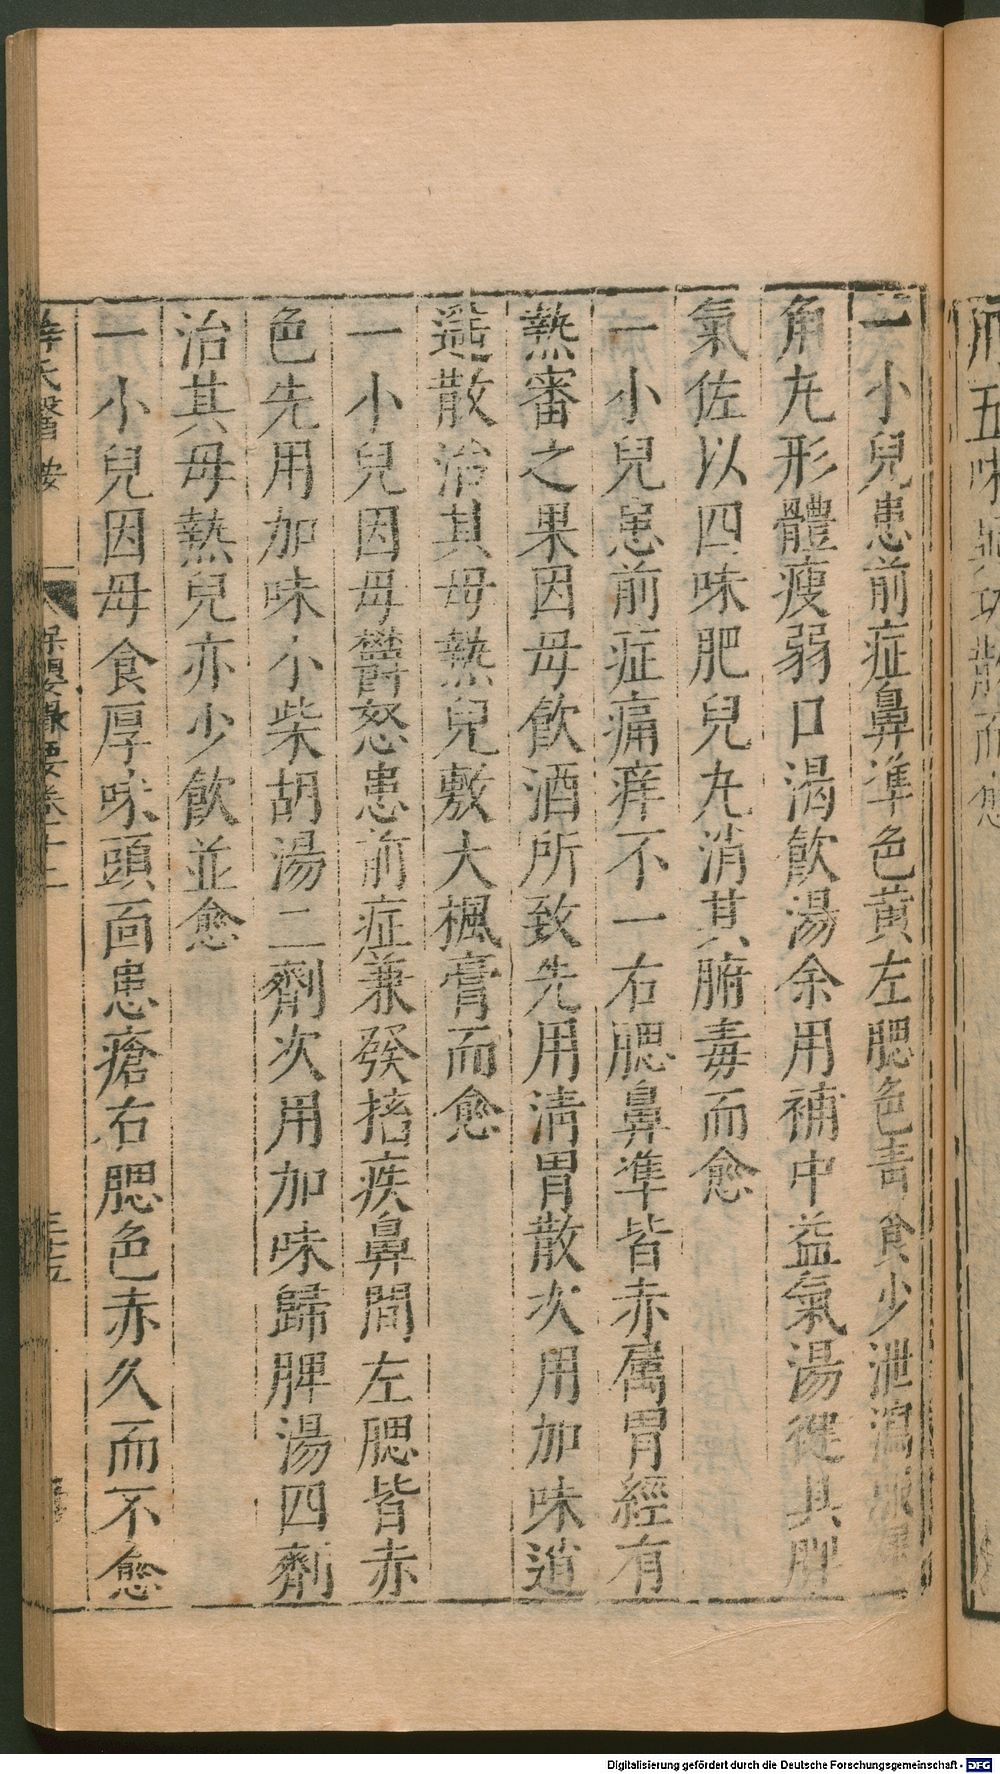 府五味異功散而愈
一小兒患前症鼻準色黃左腮色青食少泄瀉
角尢形體瘦弱口渴飲湯余用補中益氣湯健其脾
氣佐以四味肥兒丸消其腑毒而愈
一小兒患前症痛痒不一右腮鼻準皆赤属胃經有
熱審之果因母飲酒所致先用清胃散次用加味逍
遥散治其母熱兒敷大楓膏而愈
一小兒因母鬱怒患前症兼發搐疾鼻間左腮皆赤
色先用加味小柴胡湯二劑次用加味歸脾湯四劑
治其母熱兒亦少飲並愈
一小兒因母食厚味頭面患瘡右腮色赤久而不愈
薛氏醫按 保嬰撮要卷十二 三十五
Digitalisierung gefördert durch die Deutsche Forschungsgemeinschaft - DFG